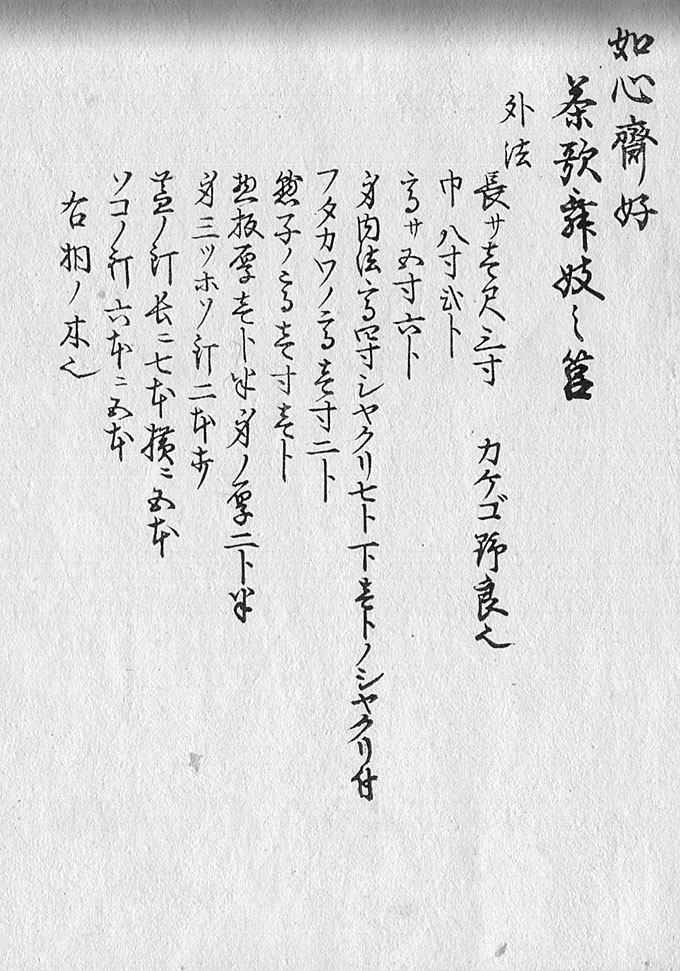 如心齋好
茶歌舞妓之筥
外法
長サ壱尺三寸 カケゴ野良也
巾八寸弐卜
高サ五寸六卜
身内法高四寸シヤクリ七卜下壱卜ノシヤクリ付
フタカワノ高壱寸二卜
懸子ノ高壱寸壱卜
惣板厚壱卜半身ノ厚二卜半
身三ツホソ釘二本ツヽ
蓋ノ釘長ニ七本横ニ五本
ソコノ釘六本ニ五本
右桐ノ木也